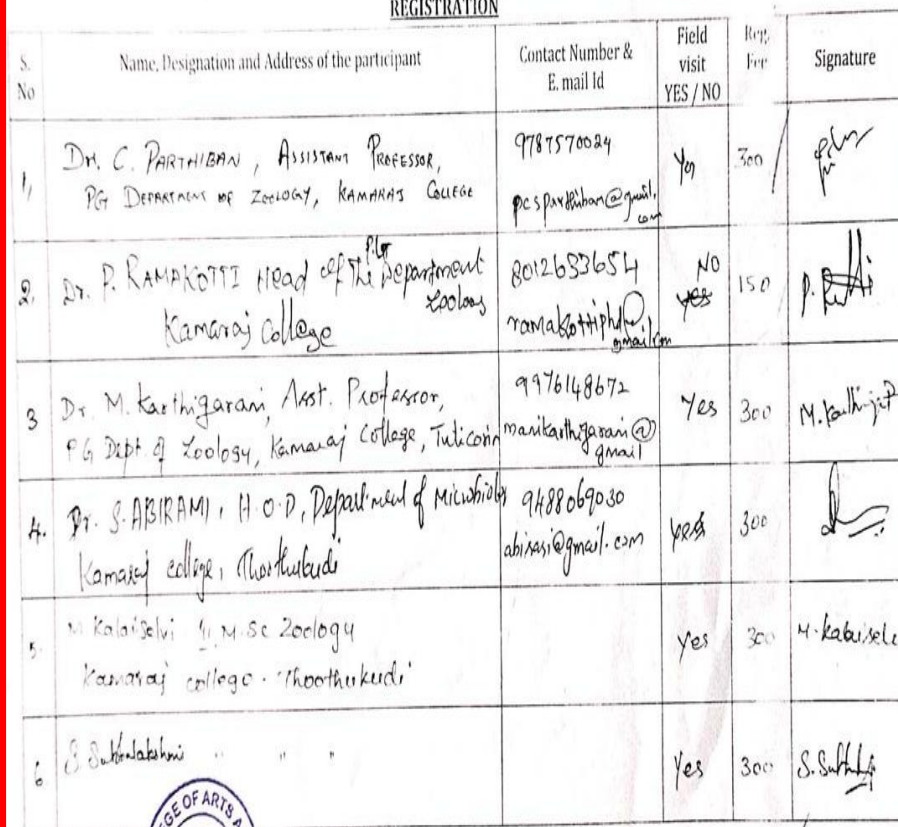 REGISTRATION
S. No
Name, Designation and Address of the participant
Contact Number & E. mail Id
Field visit YES / NO
Reg. Fee
Signature
1,
DR. C. PARTHIBAN, ASSISTANT PROFESSOR,
PG DEPARTMENT OF ZOOLOGY, KAMARAJ COLLEGE
9787570024
pcsparthiban@gmail.
com
Yes
300
2.
Dr. P. RAMAKOTTI Head of the P.G Department
Zoology
Kamaraj College
8012653654
ramakottiphd@
gmail.com
NO
yes
150
3
Dr. M. Karthigarani, Asst. Professor,
PG Dept. of Zoology, Kamaraj College, Tuticorin
9976148672
manikarthigarani@
gmail
Yes
300
4.
Dr. S. ABIRAMI, H.O.D, Department of Microbiology
Kamaraj college, Thoothukudi
9488069030
abisasi@gmail.com
yes
300
5.
M Kalaiselvi II M.Sc Zoology
Kamaraj college. Thoothukudi
yes
300
M. Kalaisel
6
S. Subbulakshmi " " "
Yes
300
GE OF ARTS A